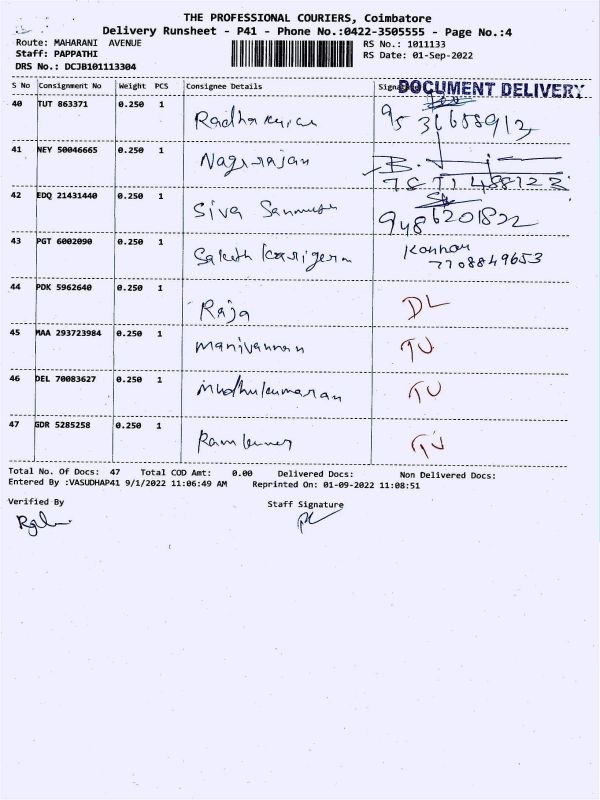 THE PROFESSIONAL COURIERS, Coimbatore
Delivery Runsheet - P41 - Phone No.:0422-3505555 - Page No.:4
Route: MAHARANI AVENUE RS No.: 1011133
Staff: PAPPATHI RS Date: 01-Sep-2022
DRS No.: DCJB101113304
DOCUMENT DELIVERY
S No Consignment No Weight PCS Consignee Details
40 TUT 863371 0.250 1
41 NEY 50046665 0.250 1 Nagarajan
42 EDQ 21431440 0.250 1 Siva 9486201822
43 PGT 6002090 0.250 1 Kannan
7708849653
44 PDK 5962640 0.250 1 Raja DL
45 MAA 293723984 0.250 1 Manivannan TU
46 DEL 70083627 0.250 1 Mudhukumaran TU
47 GDR 5285258 0.250 1 Ramkumar TU
Total No. Of Docs: 47 Total COD Amt: 0.00 Delivered Docs: Non Delivered Docs:
Entered By :VASUDHAP41 9/1/2022 11:06:49 AM Reprinted On: 01-09-2022 11:08:51
Verified By Staff Signature